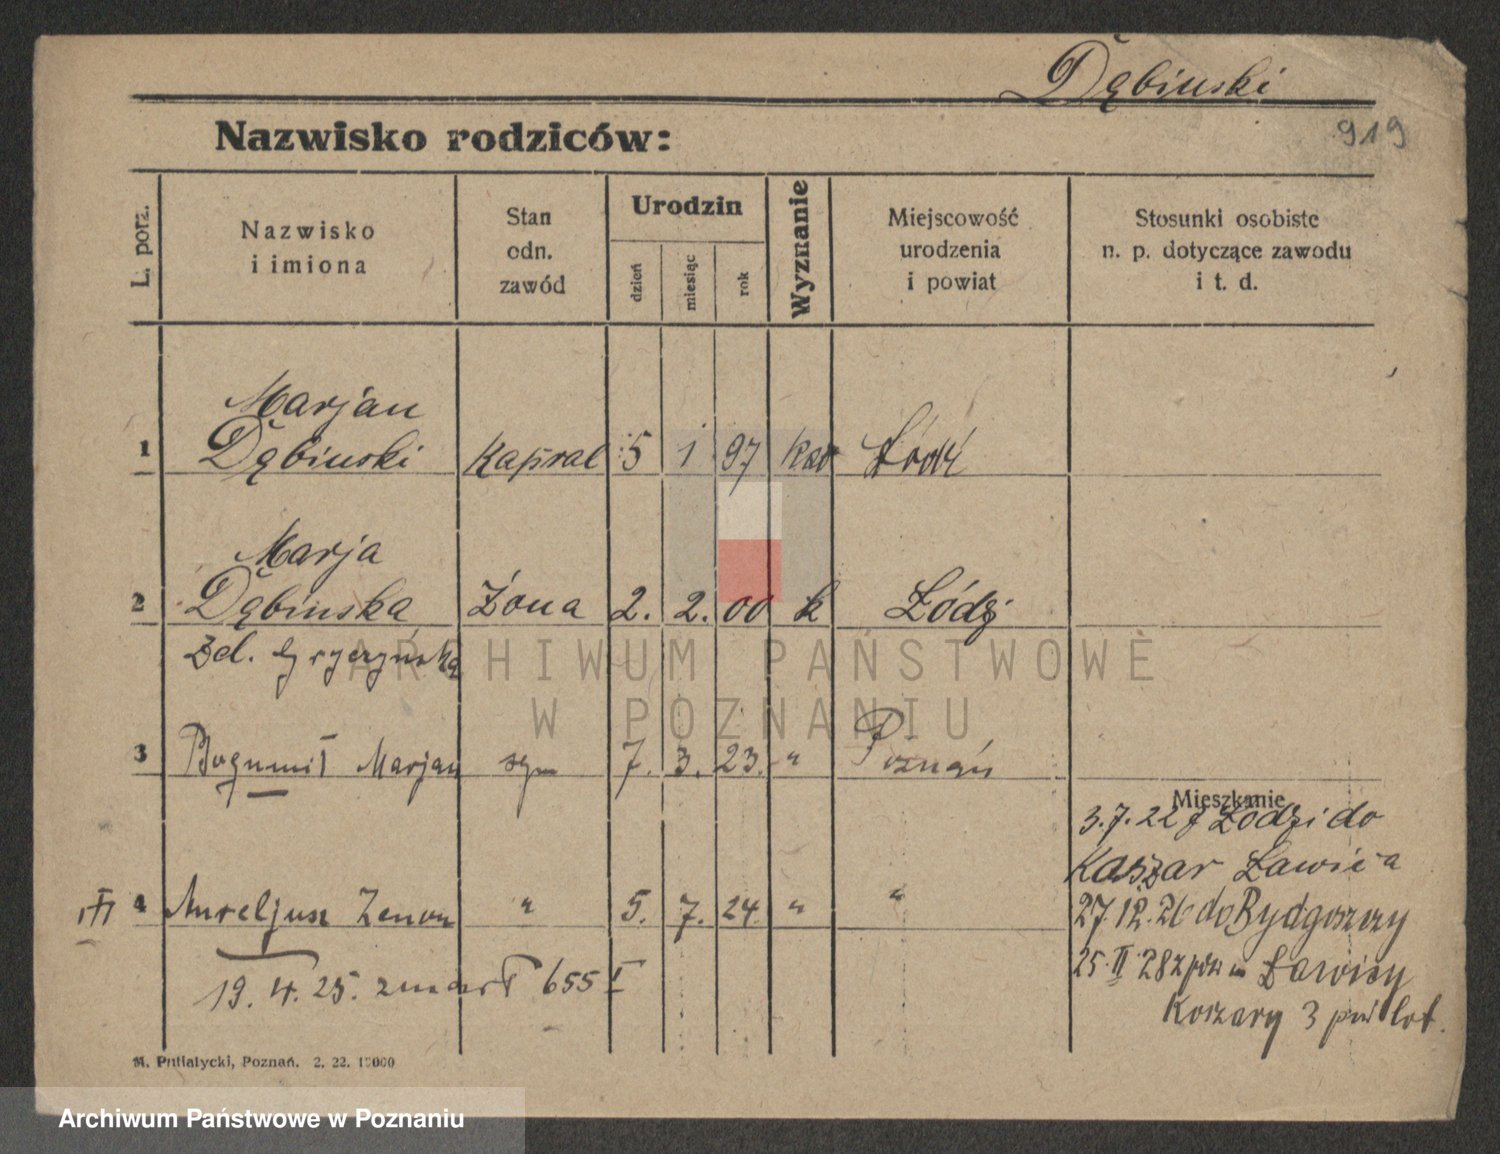 Dąbinski
919
Nazwisko rodziców:
L. porz.
Nazwisko
i imiona
Stan
odn.
zawód
Urodzin
dzień
miesiąc
rok
Wyznanie
Miejscowość
urodzenia
i powiat
Stosunki osobiste
n. p. dotyczące zawodu
i t. d.
Marjan
1 Dąbinski Kapral 5 1 97 Łódź
Marja
2 Dąbinska Żona 2. 2. 00 k Łódź
3 Bogumił Marjan syn 7. 3. 23. " Poznań
Mieszkanie
3.7.22 z Łodzi do
Koszar Ławica
III 4 Aureljusz Zenon " 5. 7. 24 " "
27.12.26 do Bydgoszczy
25.II.28 z Ławicy
19. 4. 25. zmarł 655 I
Koszary 3 lot.
M. Putiatycki, Poznań. 2. 22. 15000
ARCHIWUM PAŃSTWOWE
W POZNANIU
Archiwum Państwowe w Poznaniu